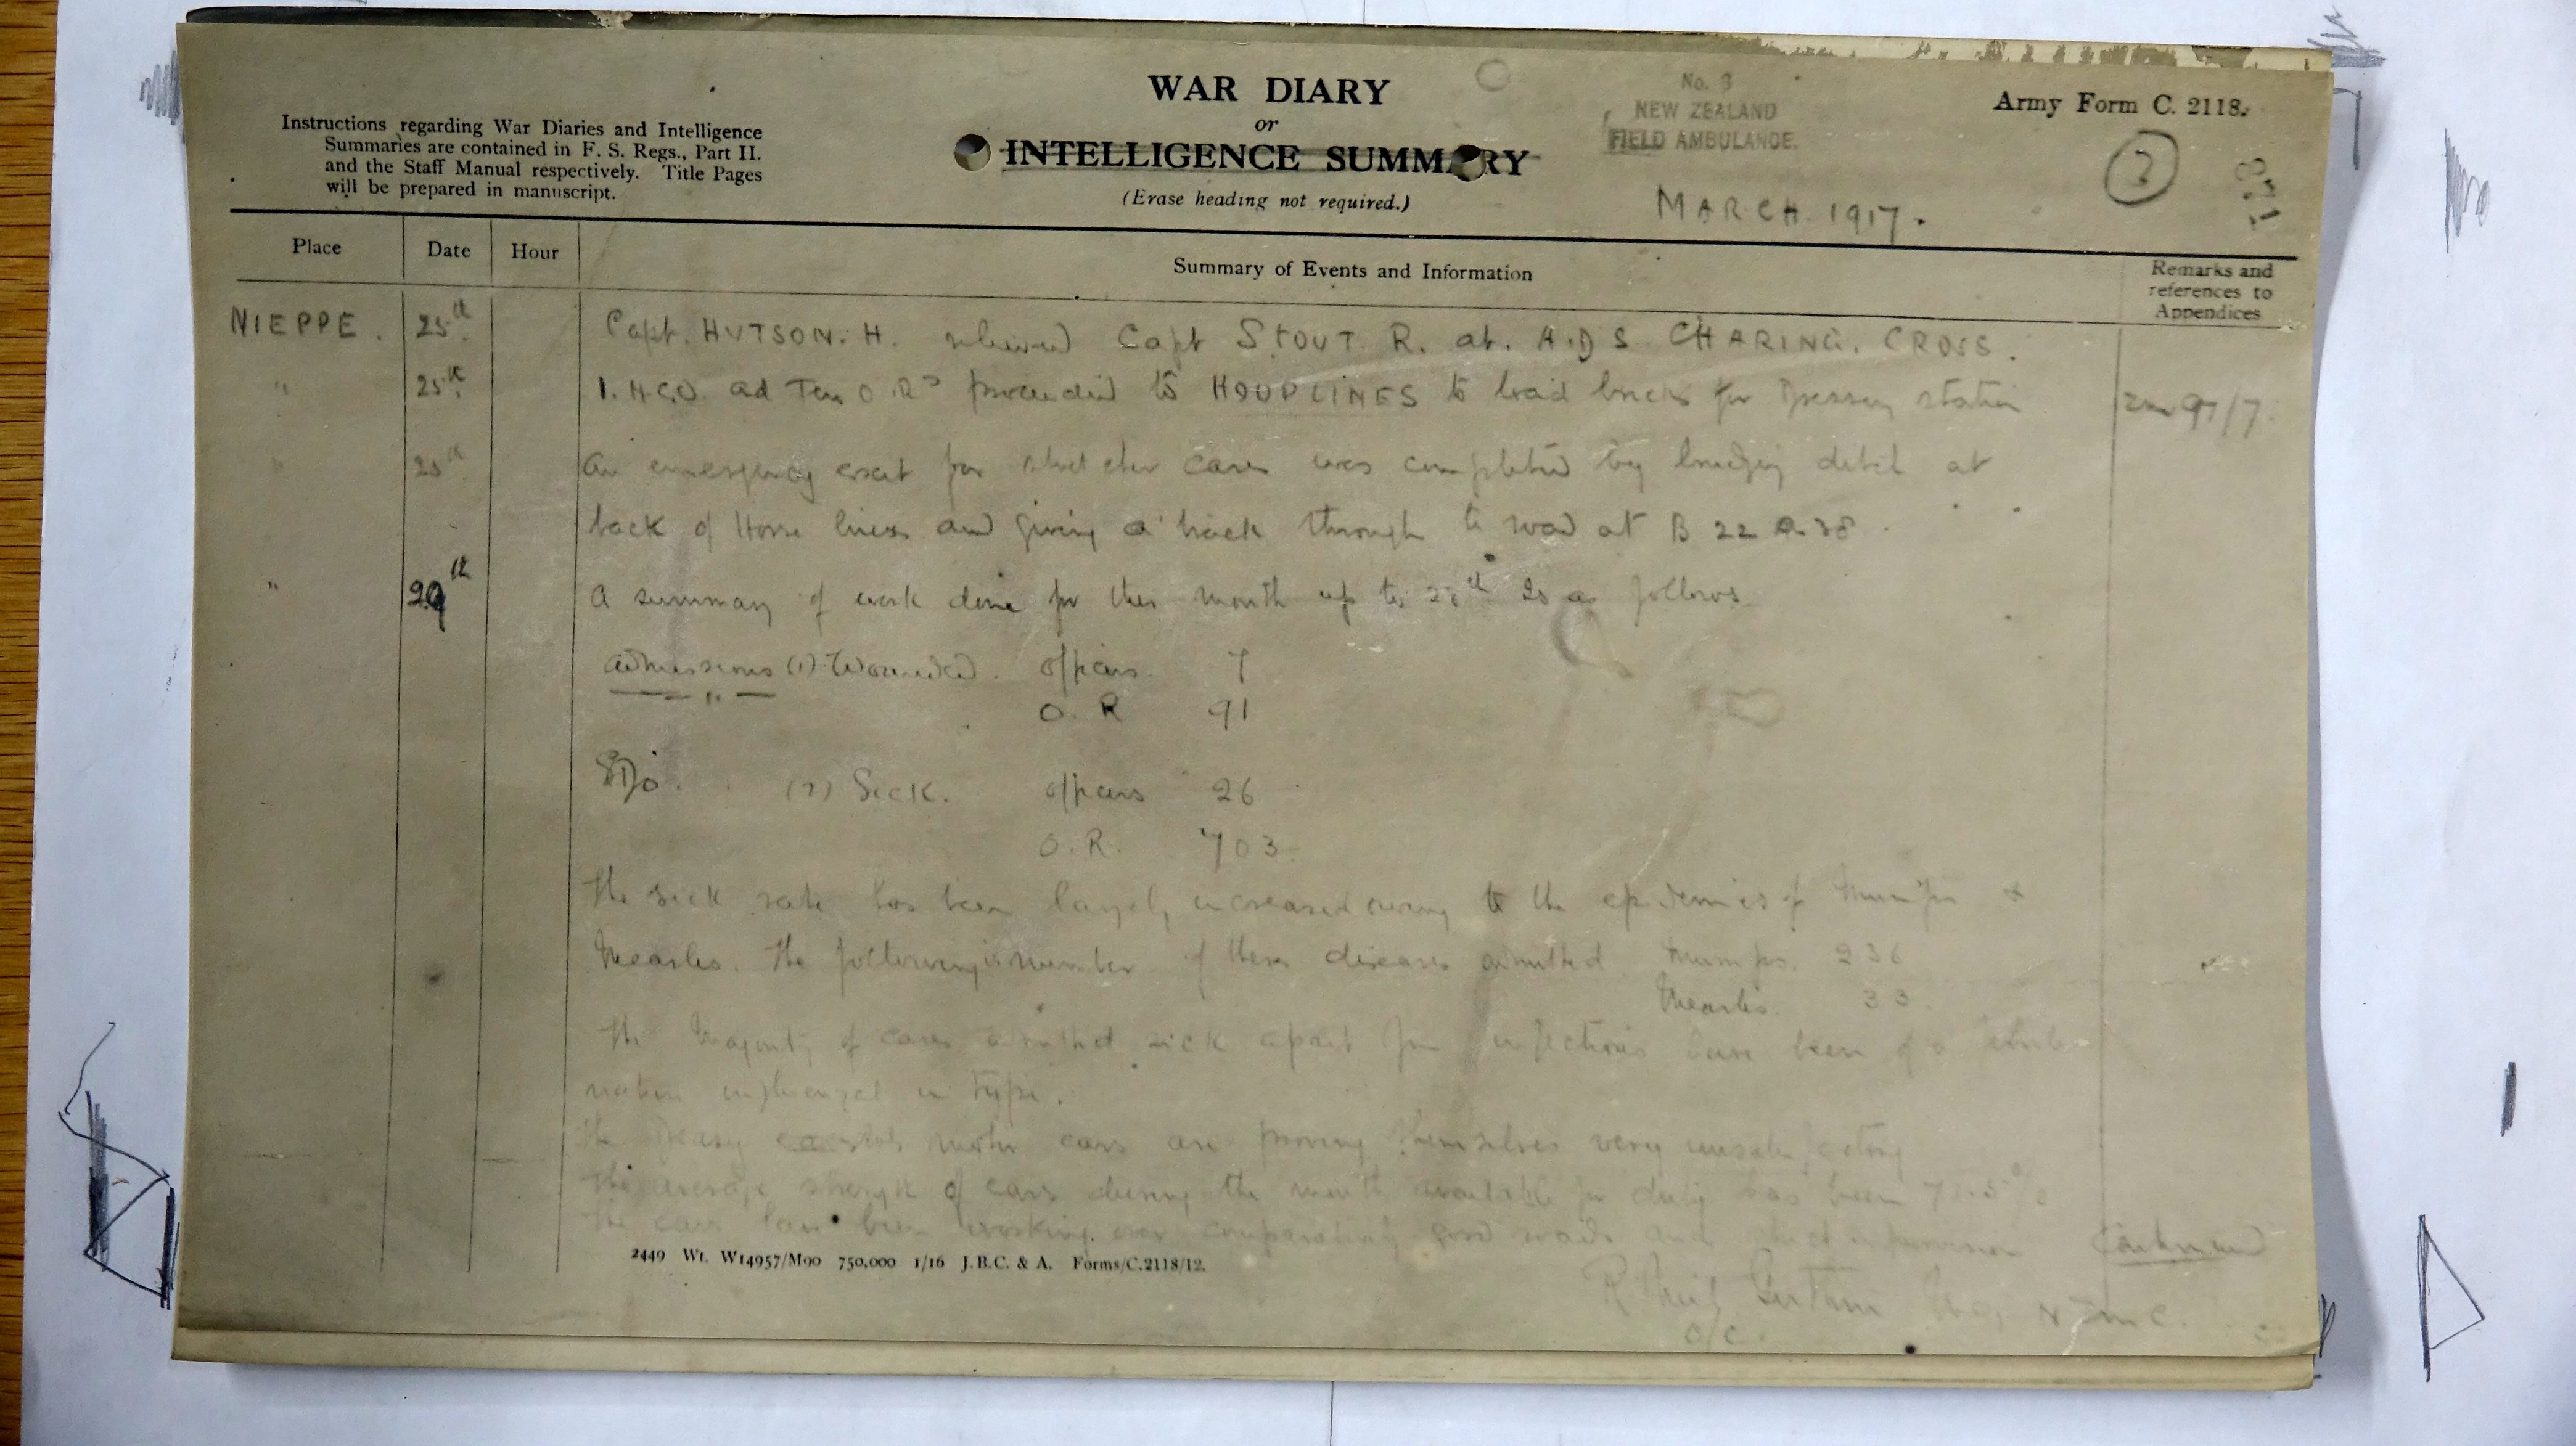 WAR DIARY
or
INTELLIGENCE SUMMARY
(Erase heading not required.)
Instructions regarding War Diaries and Intelligence
Summaries are contained in F. S. Regs., Part II.
and the Staff Manual respectively. Title Pages
will be prepared in manuscript.
No. 3
NEW ZEALAND
FIELD AMBULANCE.
Army Form C. 2118.
MARCH 1917.
Place Date Hour Summary of Events and Information Remarks and
references to
Appendices
NIEPPE. 25th Capt. HUTSON. H. relieved Capt STOUT R. at. A.D.S CHARING. CROSS.
" 25th 1. N.C.O. and Ten O.Rs proceeded to HOUPLINES to load bricks for Dressing station
" An emergency exit for stretcher cases was completed by bridging ditch at
back of Horse lines and giving a track through to road at B 22
" 29th A summary of work done for the month up to 28th is as follows
Admissions (1) Wounded. Officers. 7
" O. R 91
Do. (2) Sick. Officers 26
O. R. 703
The sick rate has been largely increased owing to the epidemics of Mumps &
Measles. The following is number of these diseases admitted Mumps. 236
Measles. 33
The Majority of cases admitted sick apart from infectious have been of a
nature influenzal in type.
The motor cars are proving themselves very unsatisfactory
The average strength of cars during the month available for duty has been 71.5%
The cars have been working over comparatively good roads and strict supervision
Continued
N.Z.M.C.
O/C.
2449 Wt. W14957/M90 750,000 1/16 J.B.C. & A. Forms/C.2118/12.